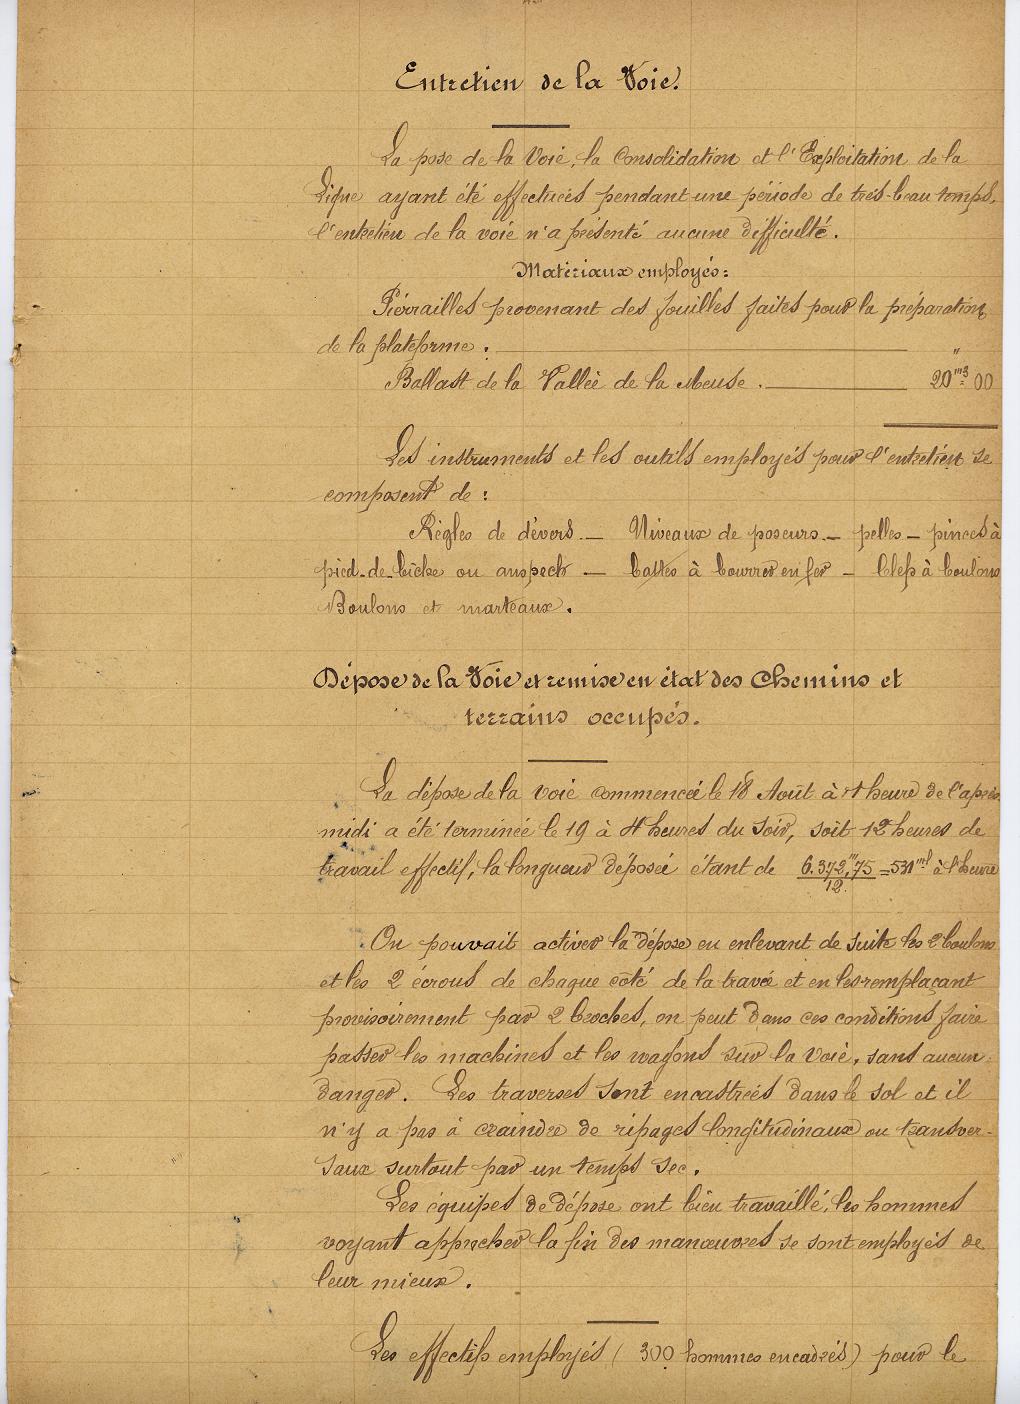 Entretien de la Voie.
La pose de la Voie, la Consolidation et l'Exploitation de la
Ligne ayant été effectuées pendant une période de très-beau temps,
l'entretien de la voie n'a présenté aucune difficulté.
Matériaux employés:
Pierrailles provenant des fouilles faites pour la préparation
de la plateforme. "
Ballast de la Vallée de la Meuse. 20 m3 00
Les instruments et les outils employés pour l'entretien se
composent de :
Règles de dévers. — Niveaux de poseurs. — pelles — pinces à
pied-de-biche ou anspech — battes à bourrer en fer — Clefs à boulons
Boulons et marteaux.
Dépose de la Voie et remise en état des Chemins et
terrains occupés.
La dépose de la voie commencée le 18 Août à 1 heure de l'après
midi a été terminée le 19 à 4 heures du Soir, soit 12 heures de
travail effectif, la longueur déposée étant de 6.372,m75/12 = 531 ml à l'heure
On pouvait activer la dépose en enlevant de suite les 2 boulons
et les 2 écrous de chaque côté de la travée et en les remplaçant
provisoirement par 2 broches, on peut dans ces conditions faire
passer les machines et les wagons sur la voie, sans aucun
danger. Les traverses sont encastrées dans le sol et il
n'y a pas à craindre de ripages longitudinaux ou transver-
saux surtout par un temps sec.
Les équipes de dépose ont bien travaillé, les hommes
voyant approcher la fin des manœuvres se sont employés de
leur mieux.
Les effectifs employés (300 hommes encadrés) pour le